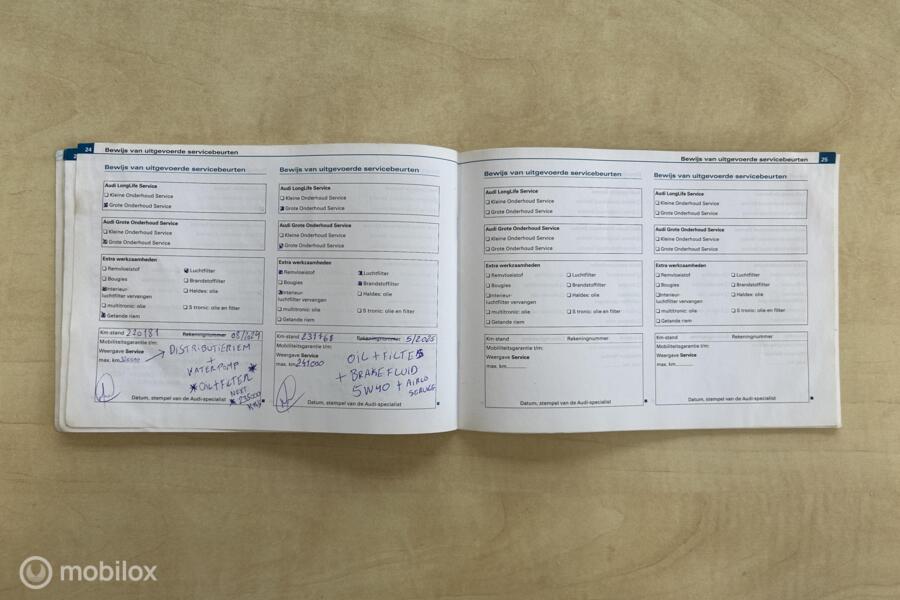 24 Bewijs van uitgevoerde servicebeurten
Bewijs van uitgevoerde servicebeurten
Audi LongLife Service
Kleine Onderhoud Service
Grote Onderhoud Service
Audi Grote Onderhoud Service
Kleine Onderhoud Service
Grote Onderhoud Service
Extra werkzaamheden
Remvloeistof Luchtfilter
Bougies Brandstoffilter
Interieur- Haldex: olie
luchtfilter vervangen
multitronic: olie S tronic: olie en filter
Getande riem
Km-stand 220181 Rekeningnummer 08/2024
Mobiliteitsgarantie t/m:
Weergave Service DISTRIBUTIERIEM
max. km +
WATERPOMP
OIL+FILTER
NEXT
235000
Datum, stempel van de Audi-specialist
Bewijs van uitgevoerde servicebeurten
Audi LongLife Service
Kleine Onderhoud Service
Grote Onderhoud Service
Audi Grote Onderhoud Service
Kleine Onderhoud Service
Grote Onderhoud Service
Extra werkzaamheden
Remvloeistof Luchtfilter
Bougies Brandstoffilter
Interieur- Haldex: olie
luchtfilter vervangen
multitronic: olie S tronic: olie en filter
Getande riem
Km-stand 231768 Rekeningnummer 5/2025
Mobiliteitsgarantie t/m:
Weergave Service OIL + FILTES
max. km 241000 + BRAKE FLUID
5W40 + AIRCO
SERVICE
Datum, stempel van de Audi-specialist
Bewijs van uitgevoerde servicebeurten 25
Bewijs van uitgevoerde servicebeurten
Audi LongLife Service
Kleine Onderhoud Service
Grote Onderhoud Service
Audi Grote Onderhoud Service
Kleine Onderhoud Service
Grote Onderhoud Service
Extra werkzaamheden
Remvloeistof Luchtfilter
Bougies Brandstoffilter
Interieur- Haldex: olie
luchtfilter vervangen
multitronic: olie S tronic: olie en filter
Getande riem
Km-stand Rekeningnummer
Mobiliteitsgarantie t/m:
Weergave Service
max. km
Datum, stempel van de Audi-specialist
Bewijs van uitgevoerde servicebeurten
Audi LongLife Service
Kleine Onderhoud Service
Grote Onderhoud Service
Audi Grote Onderhoud Service
Kleine Onderhoud Service
Grote Onderhoud Service
Extra werkzaamheden
Remvloeistof Luchtfilter
Bougies Brandstoffilter
Interieur- Haldex: olie
luchtfilter vervangen
multitronic: olie S tronic: olie en filter
Getande riem
Km-stand Rekeningnummer
Mobiliteitsgarantie t/m:
Weergave Service
max. km
Datum, stempel van de Audi-specialist
mobilox